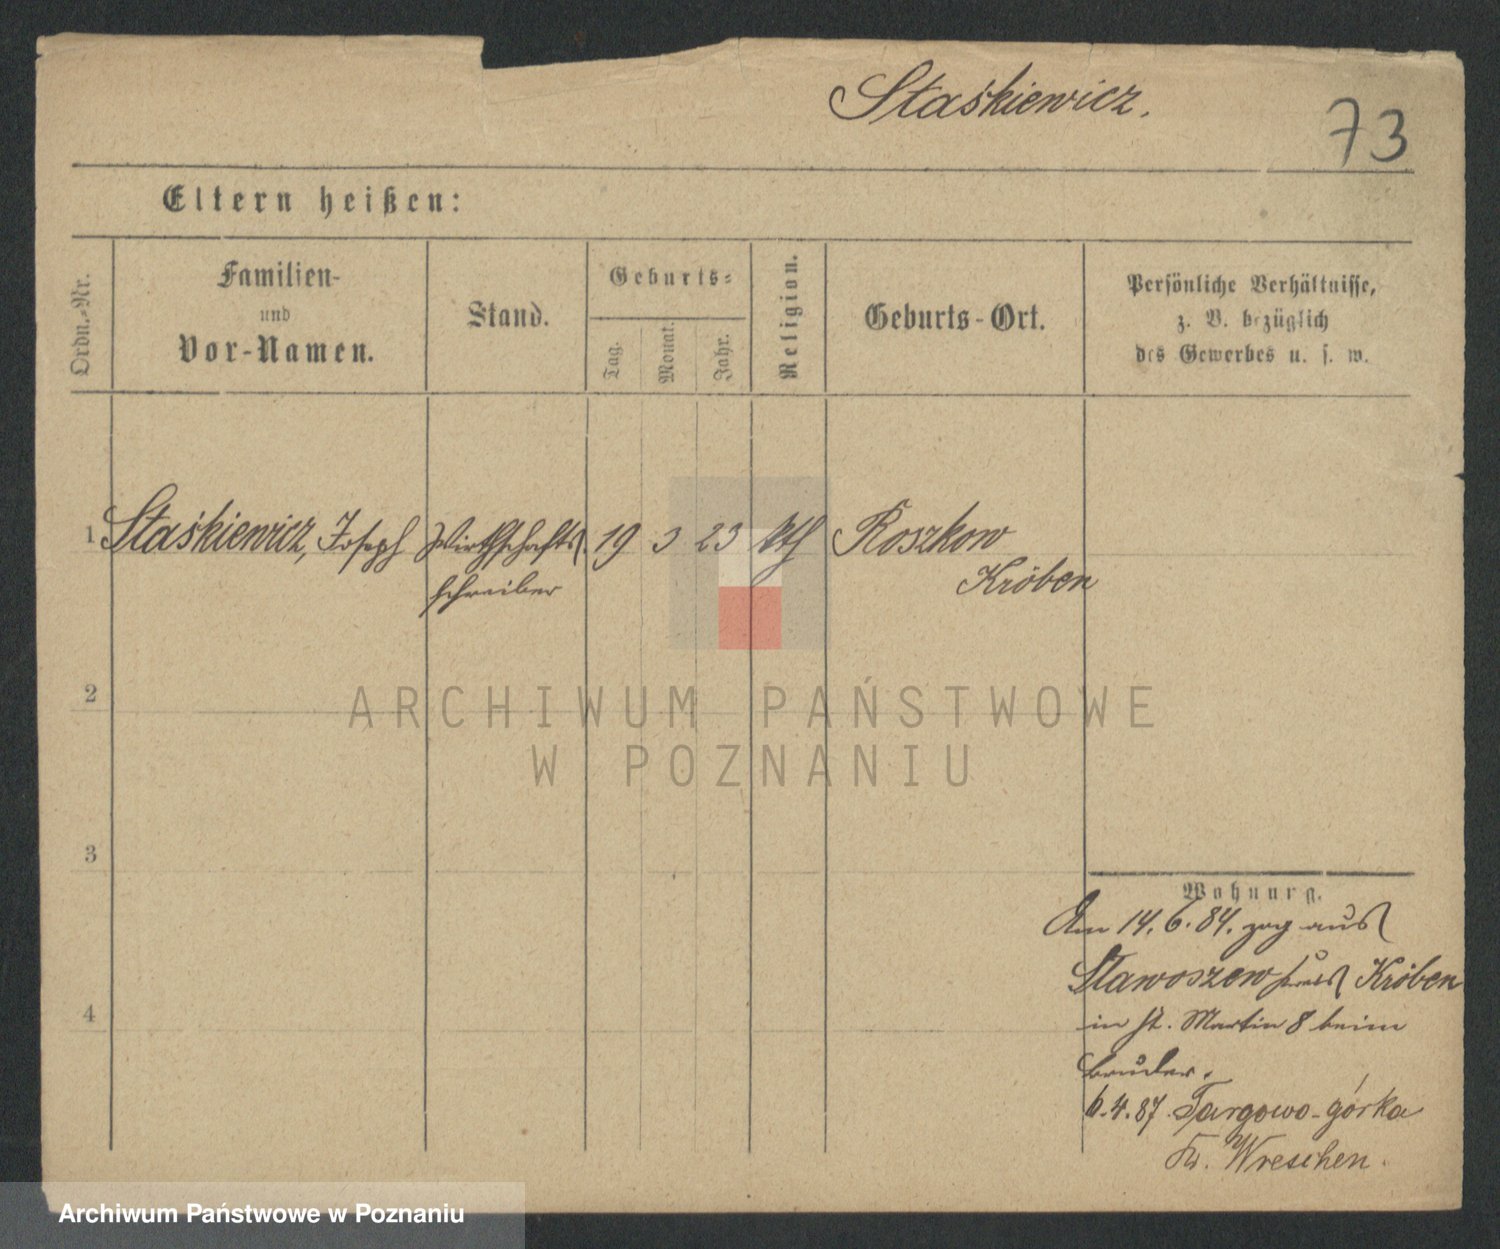 Staśkiewicz.
73
Eltern heißen:
Ordn.-Nr.
Familien-
und
Vor-Namen.
Stand.
Geburts-
Tag.
Monat.
Jahr.
Religion.
Geburts-Ort.
Persönliche Verhältnisse,
z. B. bezüglich
des Gewerbes u. s. w.
1 Staśkiewicz, Joseph Wirthschafts 19 3 23 kth Roszkow
schreiber Kröben
2
ARCHIWUM PAŃSTWOWE
W POZNANIU
3
Wohnung.
Am 14. 6. 84. zog aus
Stawoszew Kröben
4
in St. Martin 8 beim
Bruder.
6.4.87. Targowo-górka
Kr. Wreschen.
Archiwum Państwowe w Poznaniu